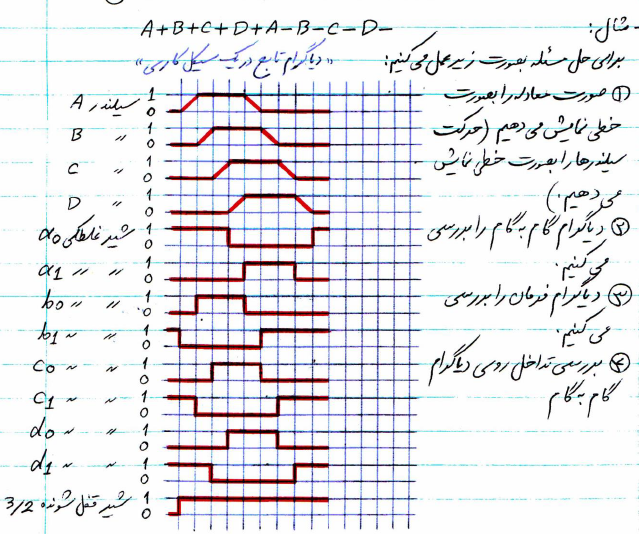 مثال:
A+B+C+D+A-B-C-D-
برای حل مسئله بصورت زیر عمل می کنیم:
① صورت معادله را بصورت
خطی نمایش می دهیم (حرکت
سیلندرها را بصورت خطی نمایش
می دهیم.)
② دیاگرام گام به گام را بررسی
می کنیم.
③ دیاگرام فرمان را بررسی
می کنیم.
④ بررسی تداخل روی دیاگرام
گام به گام
«دیاگرام تابع در یک سیکل کاری»
سیلندر A 1 0
B " 1 0
C " 1 0
D " 1 0
شیر غلطکی a0 1 0
a1 " " 1 0
b0 " " 1 0
b1 " " 1 0
c0 " " 1 0
c1 " " 1 0
d0 " " 1 0
d1 " " 1 0
شیر قفل شونده 3/2 1 0